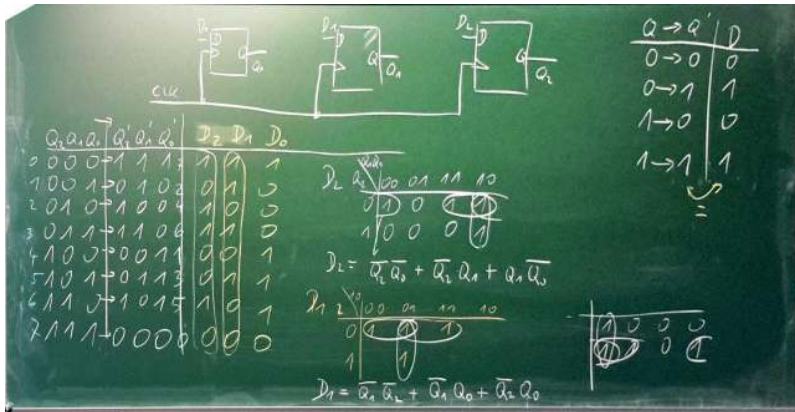 D₀ D Q Q₀
D₁ D Q Q₁
D₂ D Q Q₂
CLK
Q → Q' D
0 → 0 0
0 → 1 1
1 → 0 0
1 → 1 1
=
Q₂ Q₁ Q₀ Q₂' Q₁' Q₀' D₂ D₁ D₀
0 0 0 0 → 1 1 1 7 1 1 1
1 0 0 1 → 0 1 0 2 0 1 0
2 0 1 0 → 1 0 0 4 1 0 0
3 0 1 1 → 1 1 0 6 1 1 0
4 1 0 0 → 0 0 1 1 0 0 1
5 1 0 1 → 0 1 1 3 0 1 1
6 1 1 0 → 1 0 1 5 1 0 1
7 1 1 1 → 0 0 0 0 0 0 0
D₂ Q₂ Q₁Q₀ 00 01 11 10
0 1 0 1 1
1 0 0 0 1
D₂ = Q̅₂ Q̅₀ + Q̅₂ Q₁ + Q₁ Q̅₀
D₁ 2 10 00 01 11 10
0 1 1 1
1 1
D₁ = Q̅₁ Q̅₂ + Q̅₁ Q₀ + Q̅₂ Q₀
1 0 0 0
1 1 0 1